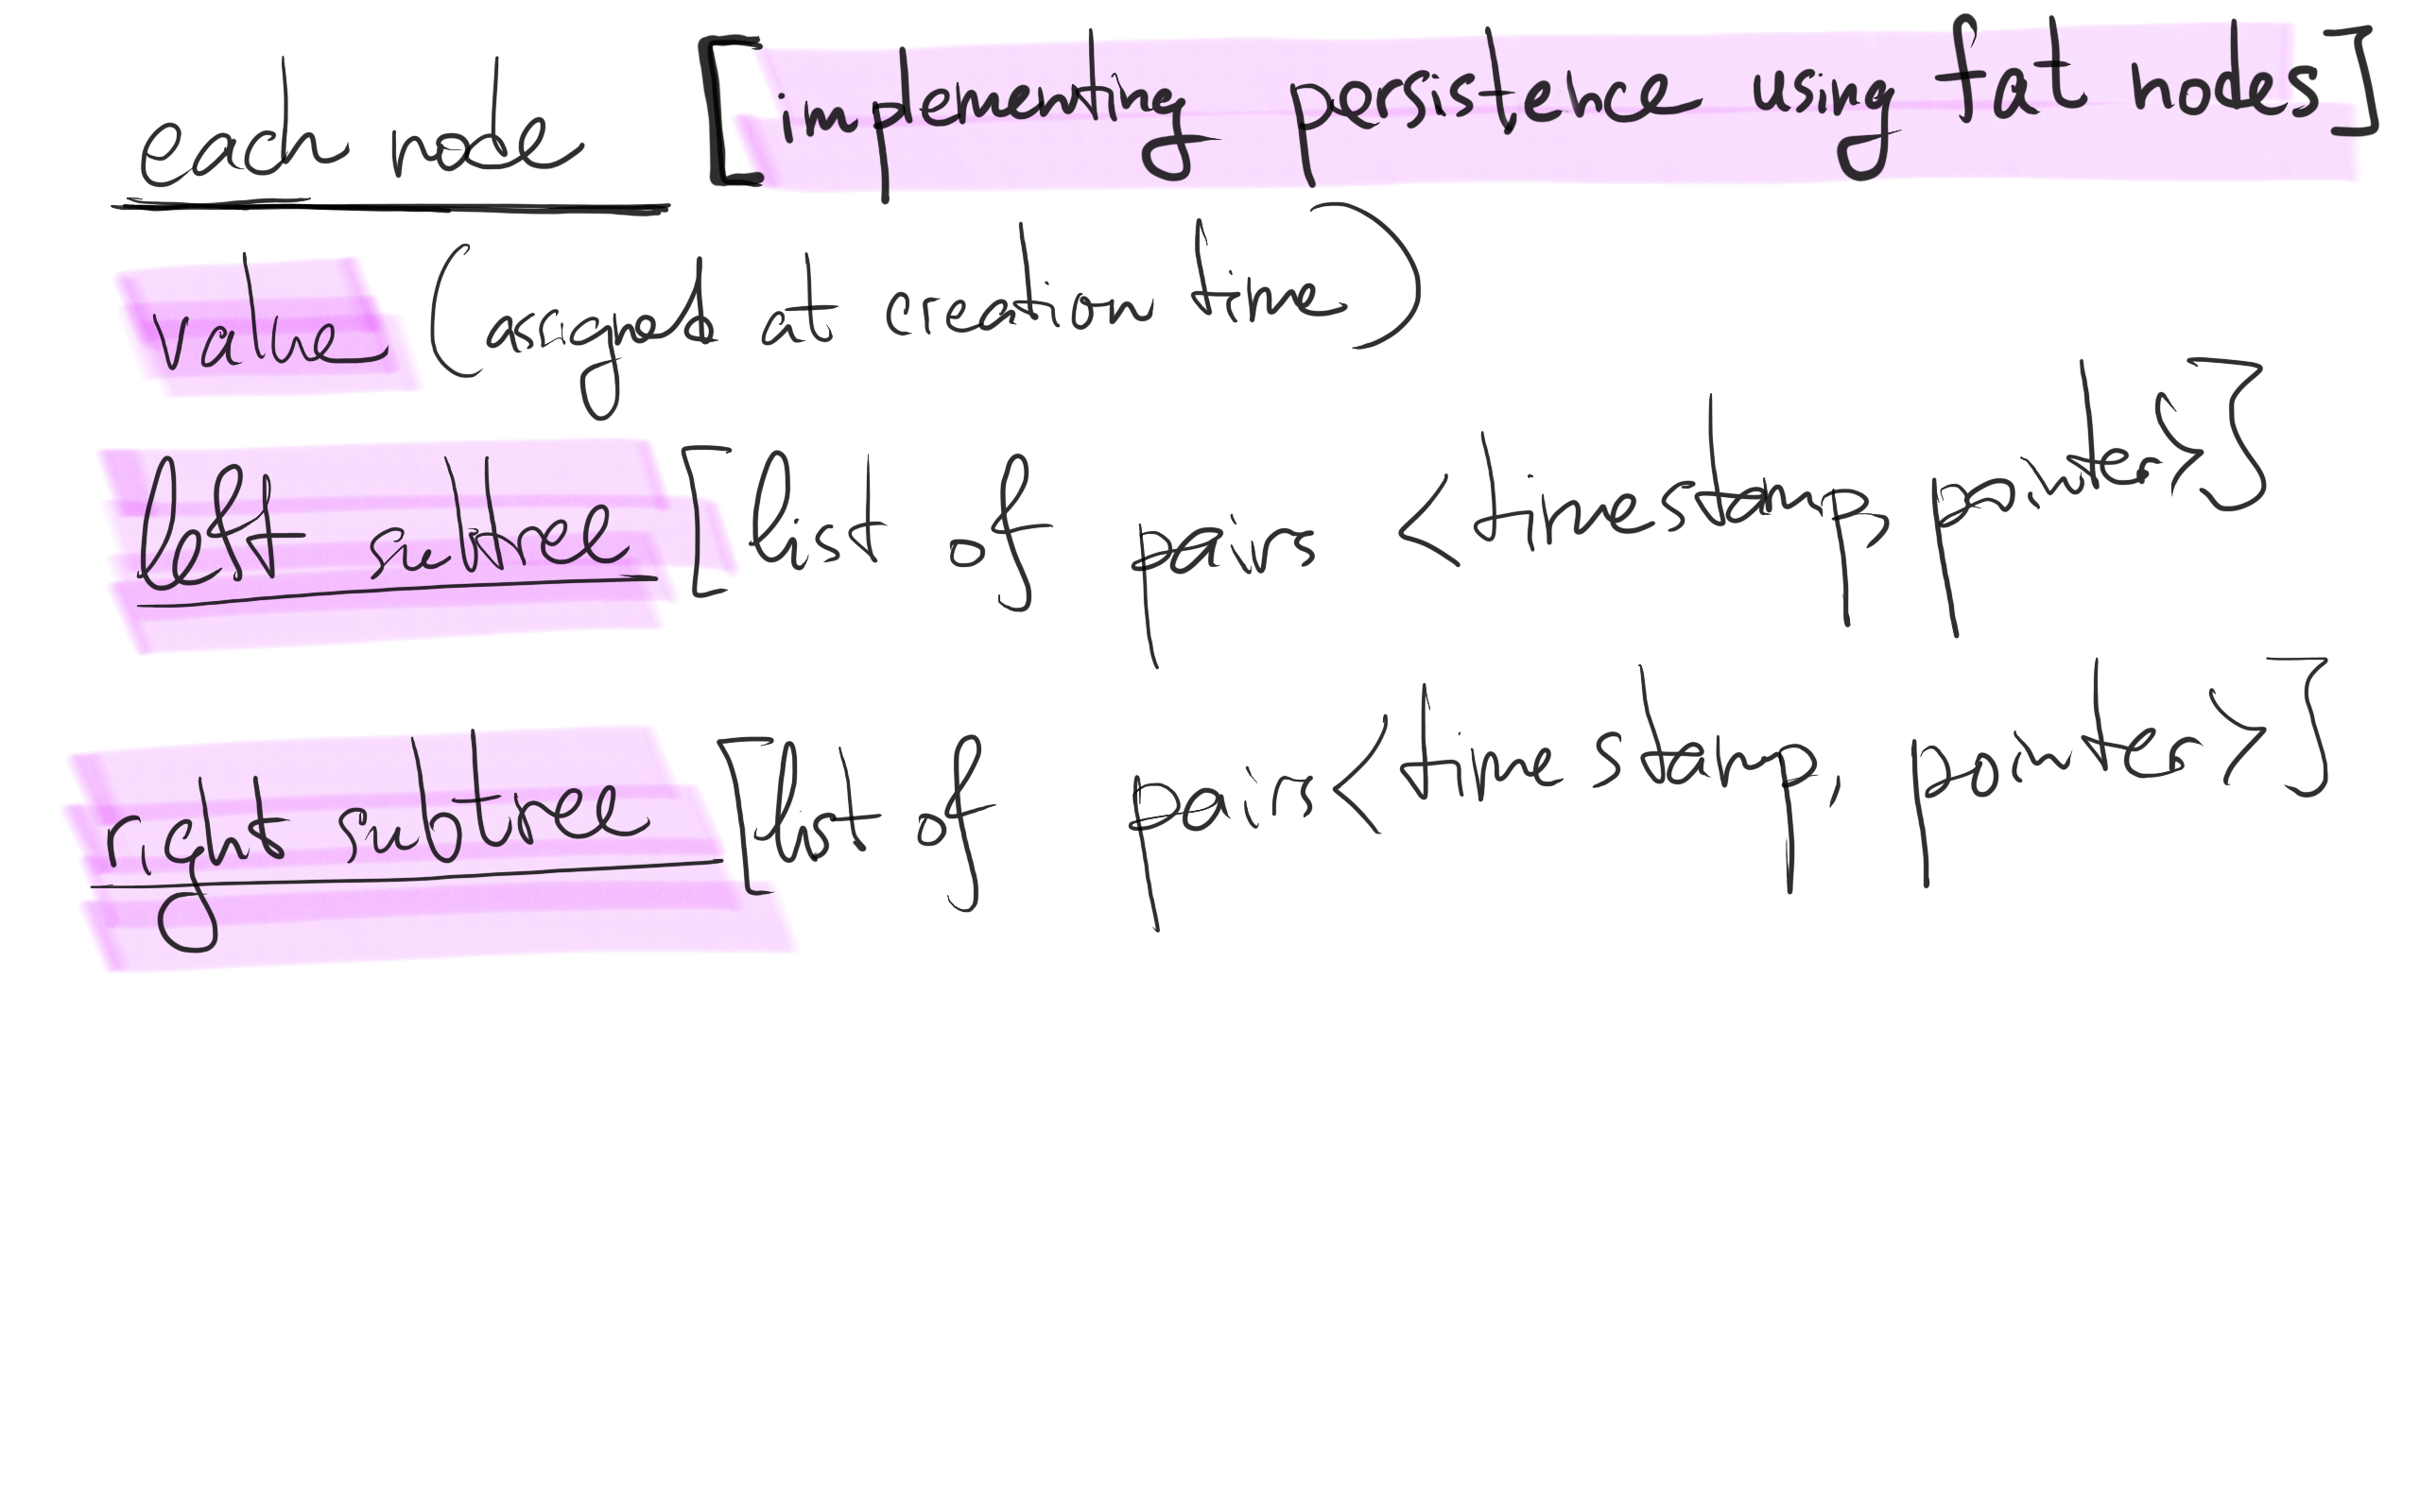 each node [implementing persistence using fat nodes]
value (assigned at creation time)
left subtree [list of pairs <timestamp, pointer>]
right subtree [list of pairs <timestamp, pointer>]